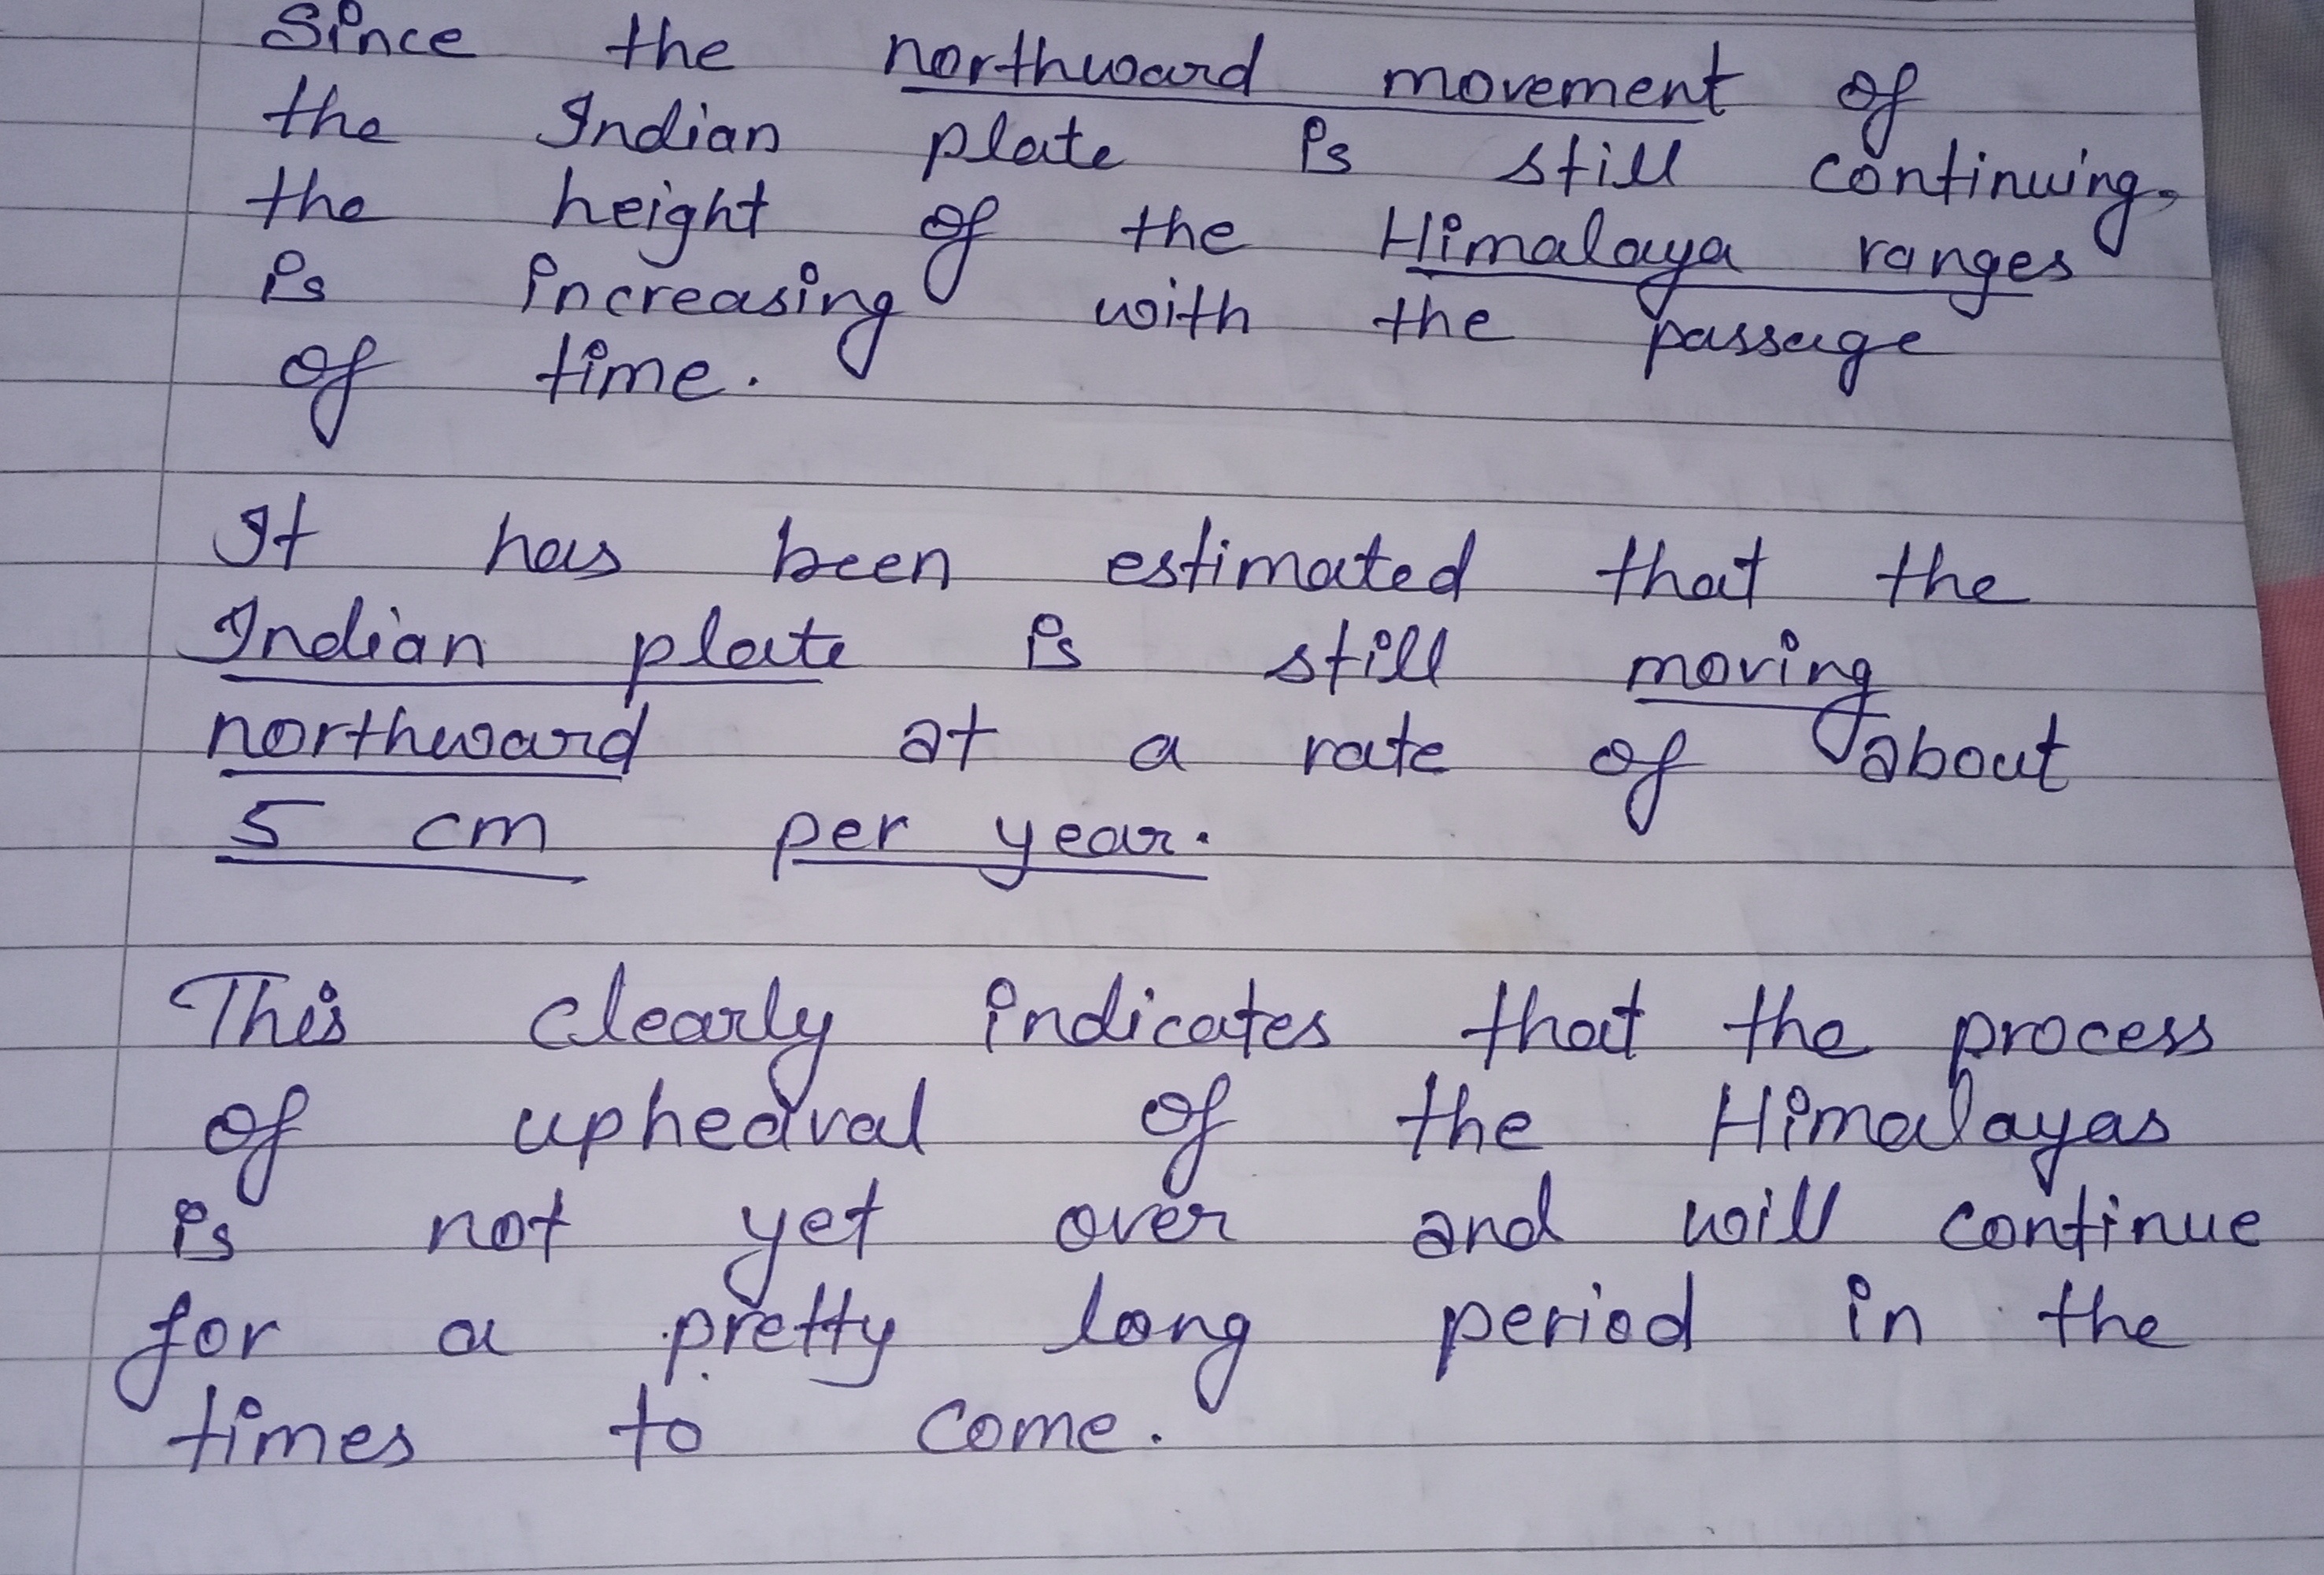 Since the northward movement of
the Indian plate is still continuing,
the height of the Himalaya ranges
is increasing with the passage
of time.
It has been estimated that the
Indian plate is still moving
northward at a rate of about
5 cm per year.
This clearly indicates that the process
of uphedval of the Himalayas
is not yet over and will continue
for a pretty long period in the
times to come.